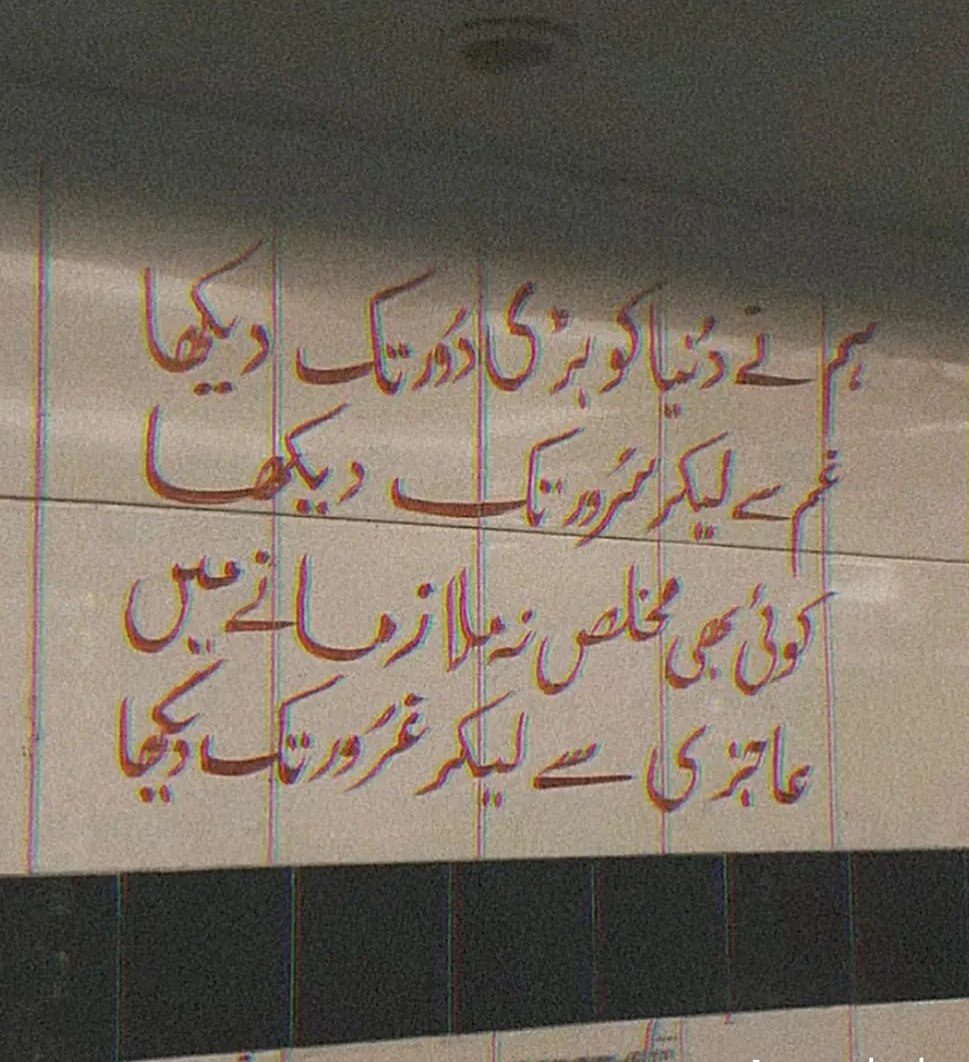 ہم نے دُنیا کو بڑی دُور تک دیکھا
غم سے لیکر سُرور تک دیکھا
کوئی بھی مخلص نہ ملا زمانے میں
عاجزی سے لیکر غرُور تک دیکھا